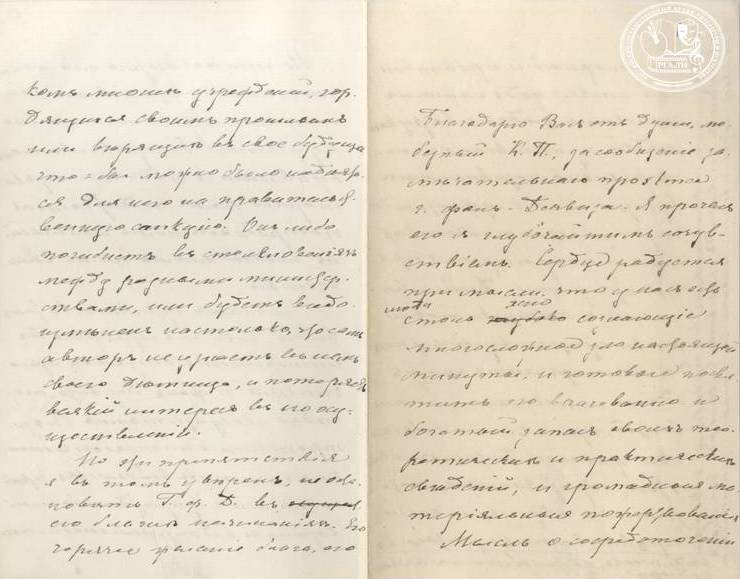 комъ многихъ учрежденій, гор-
дящихся своимъ прошлымъ
или вѣрящихъ въ свое будущее
что-бы можно было надѣять-
ся для него на правительст-
венную санкцію. Онъ либо
погибнетъ въ столкновеніяхъ
между разными министер-
ствами, или будетъ видо-
измѣненъ настолько, что самъ
авторъ не узнаетъ въ немъ
своего дѣтища, и потеряетъ
всякій интересъ къ его осу-
ществленію.
Но эти препятствія
я въ томъ увѣренъ, не оста-
новятъ Г. ф. Д. въ
его благихъ начинаніяхъ. Его
горячее желаніе блага, его
Благодарю Васъ отъ души, лю-
безный К. П., за сообщеніе за-
мѣчательнаго проэкта
г. фонъ-Дервиза. Я прочелъ
его съ глубочайшимъ сочув-
ствіемъ. Сердце радуется
при мысли, что у насъ есть
люди столь ясно сознающіе
многосложное зло настоящей
минуты, и готовые посвя-
тить его врачеванію и
богатый запасъ своихъ тео-
ретическихъ и практическихъ
свѣденій, и громадныя ма-
теріяльныя пожертвованія
Мысль о сосредоточеніи
РГАЛИ